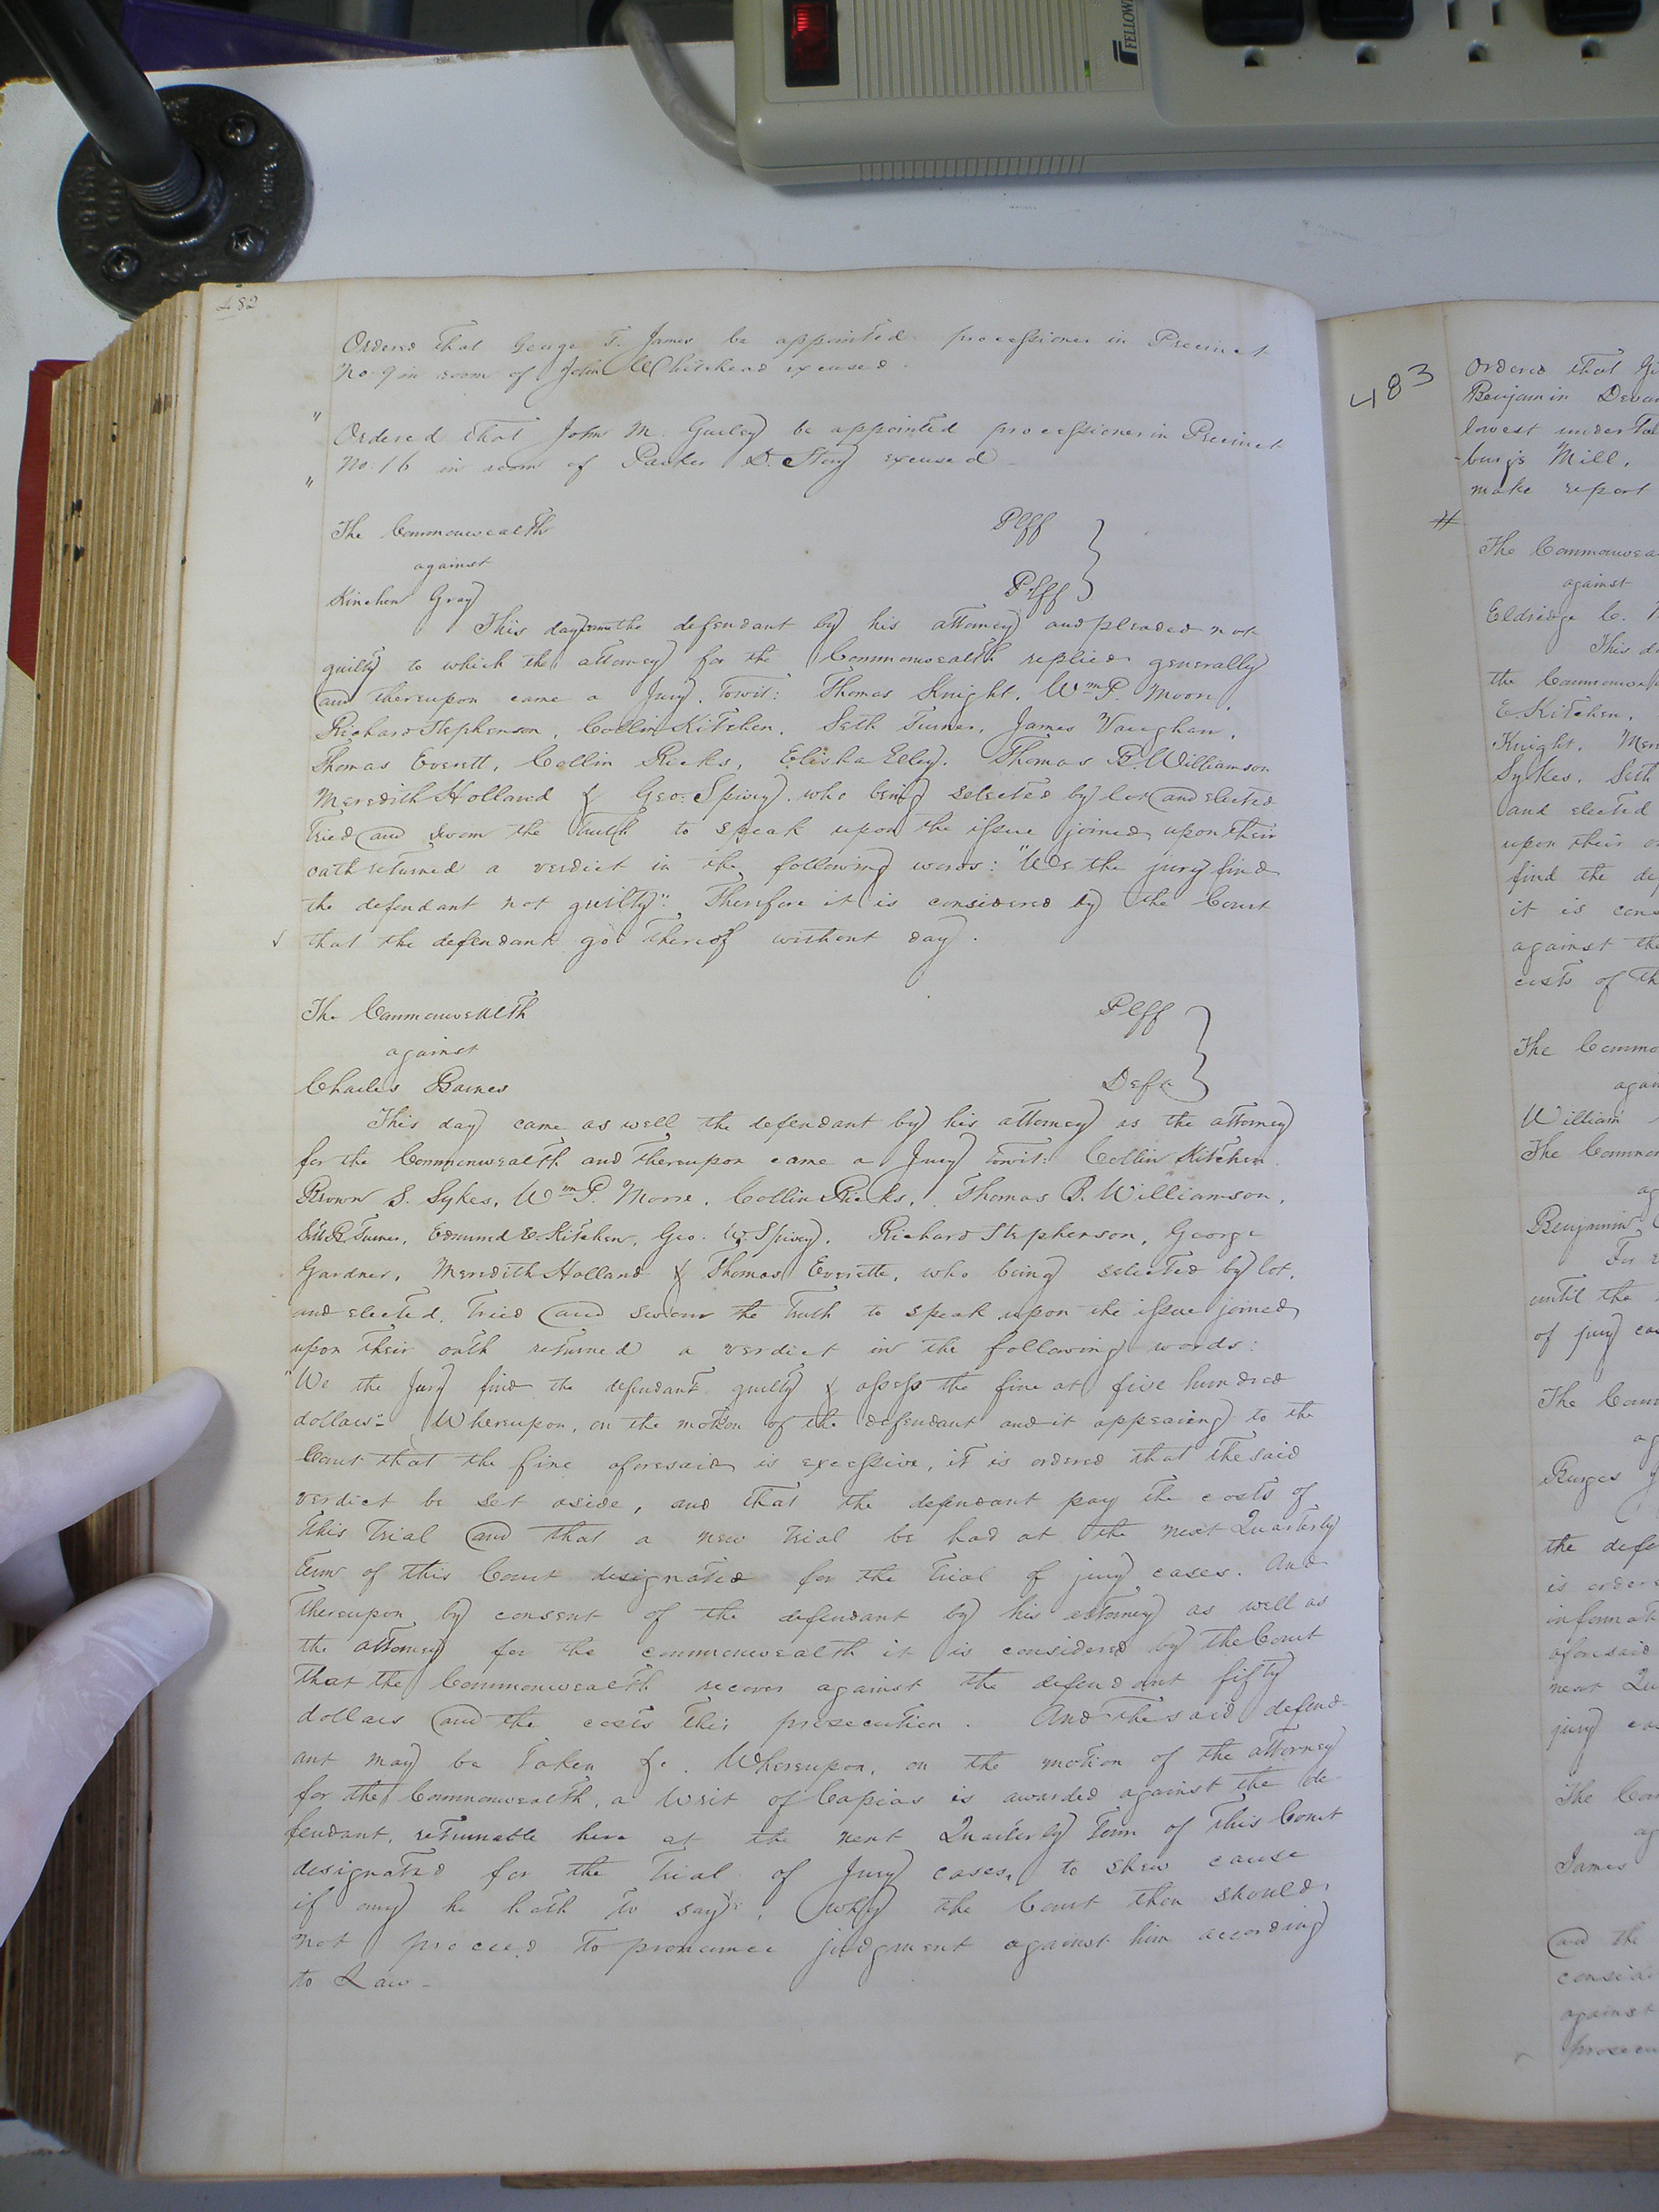 FELLOWE
482
Ordered that George T. James be appointed processioner in Precinct
No. 9 in room of John Whitehead excused.
"
Ordered that John M. Gurley be appointed processioner in Precinct
No. 16 in room of Parker D. Story excused
"
The Commonwealth Plff
against
Kinchen Gray Plff
This day came the defendant by his attorney and pleaded not
guilty to which the attorney for the Commonwealth replied generally
and thereupon came a Jury, towit: Thomas Knight, Wm P Moore,
Richard Stephenson, Collin Kitchen, Seth Turner, James Vaughan,
Thomas Everett, Collin Ricks, Elisha Elley, Thomas B. Williamson
Meredith Holland & Geo. Spivey, who being selected by lot and elected
tried and sworn the truth to speak upon the issue joined, upon their
oath returned a verdict in the following words: "We the jury find
the defendant not guilty": Therefore it is considered by the Court
that the defendant go thereof without day.
The Commonwealth Plff
against
Charles Barnes Deft
This day came as well the defendant by his attorney as the attorney
for the Commonwealth and thereupon came a Jury towit: Collin Kitchen
Brown S. Sykes, Wm P. Moore, Collin Ricks, Thomas B. Williamson,
Turner, Edmund E. Kitchen, Geo. W. Spivey, Richard Stephenson, George
Gardner, Meredith Holland & Thomas Everette, who being selected by lot,
and elected, tried and sworn the truth to speak upon the issue joined
upon their oath returned a verdict in the following words:
"We the Jury find the defendant guilty & assess the fine at five hundred
dollars" Whereupon, on the motion of the defendant and it appearing to the
Court that the fine aforesaid is excessive, it is ordered that the said
verdict be set aside, and that the defendant pay the costs of
this trial and that a new trial be had at the next Quarterly
term of this Court designated for the trial of jury cases. And
thereupon by consent of the defendant by his attorney as well as
the attorney for the commonwealth it is considered by the Court
that the Commonwealth recover against the defendant fifty
dollars and the costs this prosecution. And the said defend-
ant may be taken &c. Whereupon, on the motion of the attorney
for the Commonwealth, a Writ of Capias is awarded against the de-
fendant, returnable here at the next Quarterly Term of this Court
designated for the trial of Jury cases, to shew cause
if any he hath to say, why the Court then should
not proceed to pronounce judgment against him according
to Law-
483
Ordered that
Benjamin
lowest
Mill,
make report
#
The
against
Eldridge C.
This
the
E Kitchen,
Knight,
Sykes, Seth
and elected
upon their
find the
it is
against the
costs of
The
William
The
Benjamin
until the
of jury
The
Burges
the
is
aforesaid
next
jury
The
James
and the
against